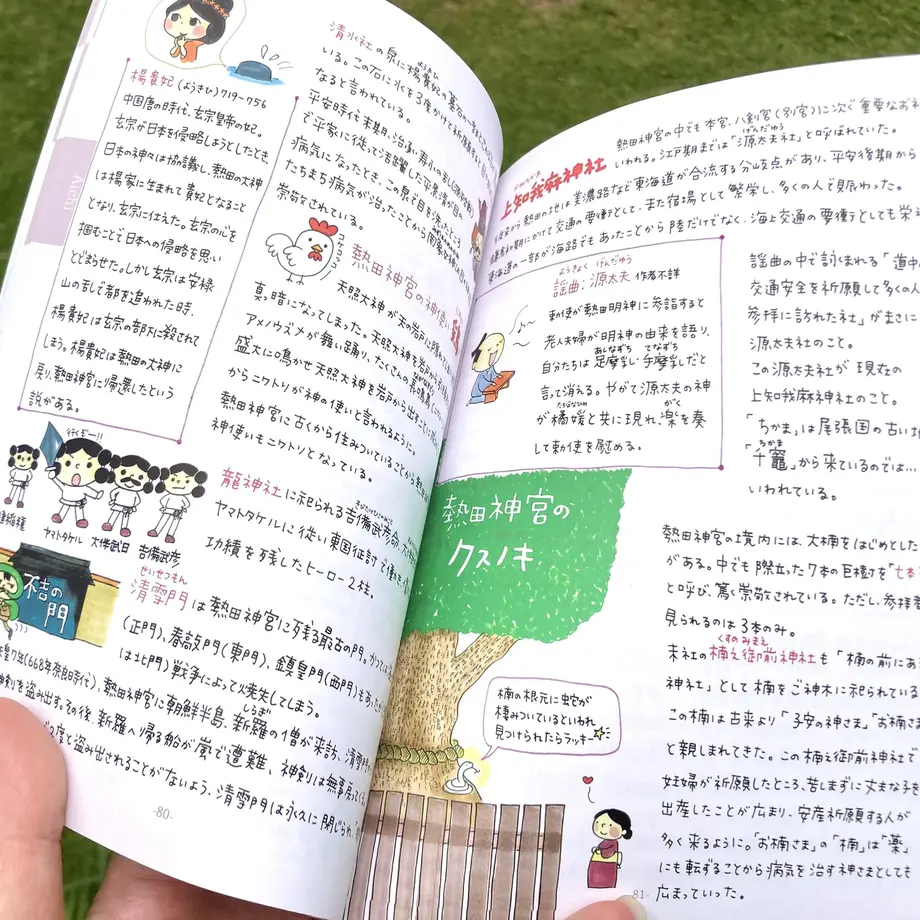 Aichi
楊貴妃(ようきひ)719-756
中国唐の時代、玄宗皇帝の妃。
玄宗が日本を侵略しようとしたとき、
日本の神々は協議し、熱田の大神
は楊家に生まれて貴妃となること
となり、玄宗に仕えた。玄宗の心を
掴むことで日本への侵略を思い
とどまらせた。しかし玄宗は安禄
山の乱で都を追われた時、
楊貴妃は玄宗の部下に殺されて
しまう。楊貴妃は熱田の大神に
戻り、熱田神宮に帰還したという
説がある。
清水社の泉に楊貴妃の墓石の一部
ようきひ
いる。この石に水を3度かけて祈願すると
なると言われている。
平安時代末期、治承・寿永の
で平家に従って活躍した平景清が目の
病気になったとき、この泉で目を洗ったところ
たちまち病気が治ったことから
崇敬されている。
コケコッコー
熱田神宮の神使い
天照大神が天の岩戸に隠れて
真っ暗になってしまった。天照大神を岩戸から
アメノウズメが舞い踊り、たくさんの長鳴鳥
盛大に鳴かせ天照大神を岩戸から出すことに
からニワトリが神の使いと言われるように。
熱田神宮に古くから住みついていることから
神使いもニワトリとなっている。
行くぞー!!
ヤマトタケル
大伴武日
吉備武彦
龍神社に祀られる吉備武彦命、大
ヤマトタケルに従い東国征討で働き
功績を残したヒーロー2柱。
不吉の
門
せいせつもん
清雪門は熱田神宮に残る最古の門。かつては
(正門)、春敲門(東門)、鎮皇門(西門)もあったが
は北門)戦争によって焼失してしまう。
天皇7年(668年奈良時代)、熱田神宮に朝鮮半島、新羅の僧が来訪、清雪門
しらぎ
神剣を盗み出す。その後、新羅へ帰る船が嵐で遭難、神剣は無事戻って
2度と盗み出されることがないよう、清雪門は永久に閉じられ、
-80-
熱田神宮の中でも本宮、八剣宮(別宮)に次ぐ重要なお
げんだゆう
いわれる。江戸期までは「源太夫社」と呼ばれていた。
上知我麻神社
から熱田の地は美濃路など東海道が合流する分岐点があり、平安後期から
期にかけて交通の要衝として、また宿場として繁栄し、多くの人で賑わった。
東海道の一部が海路でもあったことから陸だけでなく、海上交通の要衝としても栄
ようきょく げんだゆう
謡曲:源太夫 作者不詳
勅使が熱田明神に参詣すると
老夫婦が明神の由来を語り、
あしなずち てなずち
自分たちは足摩乳・手摩乳だと
言って消える。やがて源太夫の神
たちばなひめ がく
が橘媛と共に現れ、楽を奏
して勅使を慰める。
謡曲の中で討くまれる「道中
交通安全を祈願して多くの人
参拝に訪れた社」がまさに
源太夫社のこと。
この源太夫社が現在の
上知我麻神社のこと。
「ちかま」は尾張国の古い地
ちかま
「千竈」から来ているのでは…
いわれている。
熱田神宮の
クスノキ
楠の根元に蛇が
棲みついているといわれ
見つけられたらラッキー
熱田神宮の境内には、大楠をはじめとした
がある。中でも際立った7本の巨樹を「七本
と呼び、篤く崇敬されている。ただし、参拝者
見られるのは3本のみ。
くすのみまえ
末社の楠之御前神社も「楠の前にあ
神社」として楠をご神木に祀られている
この楠は古来より「子安の神さま」「お楠さま
と親しまれてきた。この楠之御前神社で
妊婦が祈願したところ、苦しまずに丈夫な子を
出産したことが広まり、安産祈願する人が
多く来るように。「お楠さま」の「楠」は「薬」
にも転ずることから病気を治す神さまとしても
広まっていった。
-81-